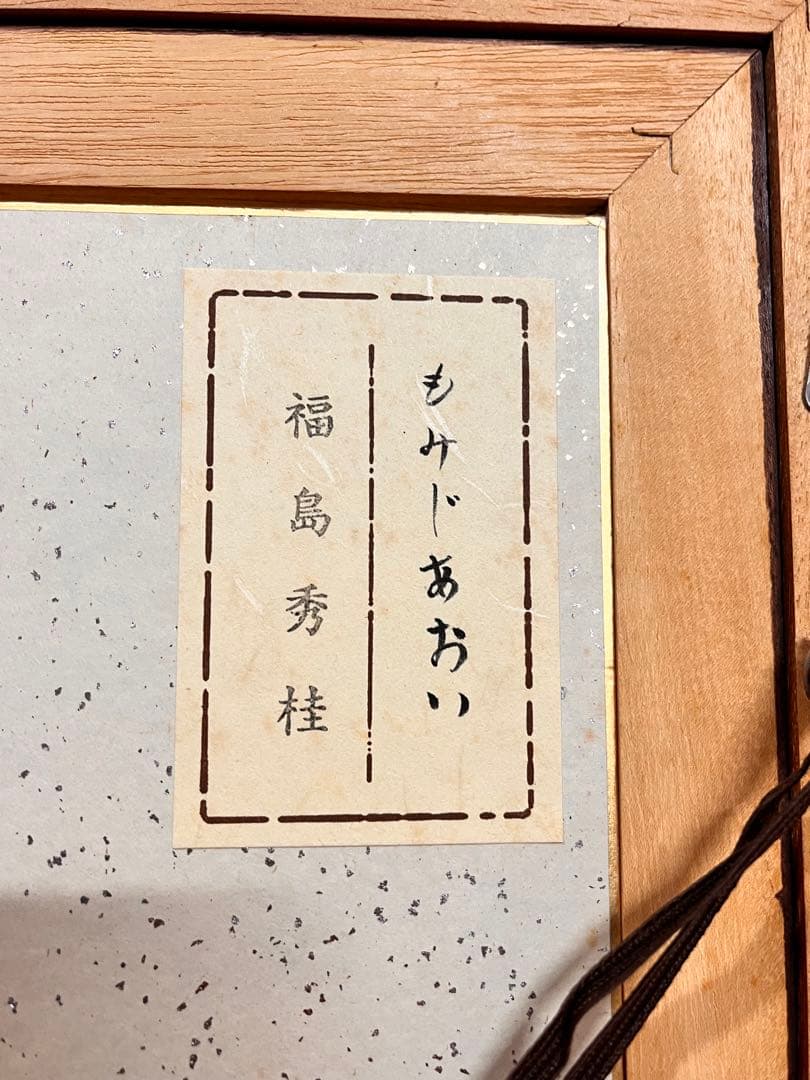 もみじあおい
福島秀桂